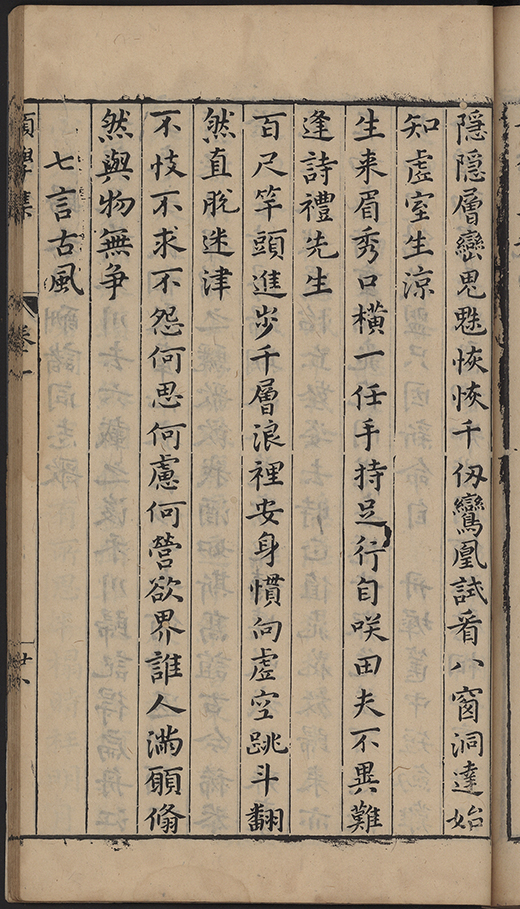 隱隱層巒鬼魅恢恢千仭鸞凰試看八窗洞達始
知虛室生涼
生来眉秀口橫一任手持足行自咲田夫不異難
逢詩禮先生
百尺竿頭進步千層浪裡安身慣向虛空跳斗翻
然直脫迷津
不忮不求不怨何思何慮何營欲界誰人滿願翛
然與物無争
七言古風
學集
卷一
廿八